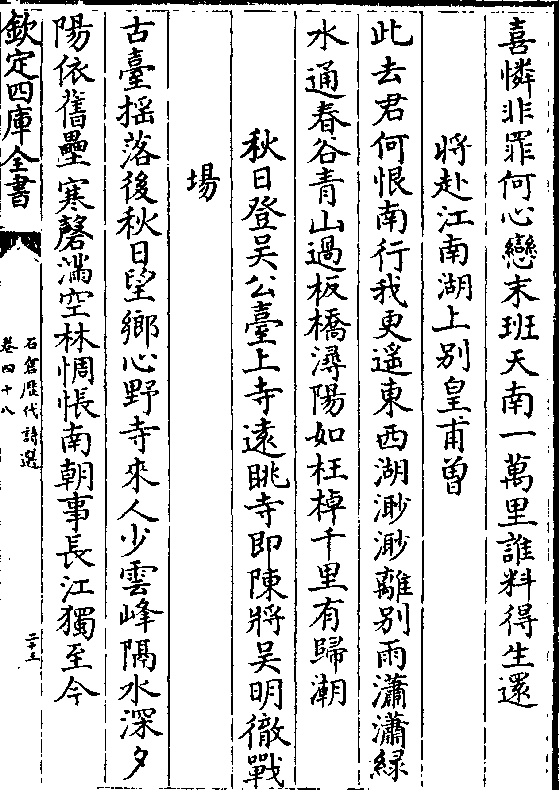 喜憐非罪何心戀末班天南一萬里誰料得生還
將赴江南湖上別皇甫曾
此去君何恨南行我更遥東西湖渺渺離別雨瀟瀟緑
水通春谷青山過板橋潯陽如枉棹千里有歸潮
秋日登吳公臺上寺遠眺寺即陳將吳明徹戰
場
古臺揺落後秋日望鄉心野寺來人少雲峰隔水深夕
陽依舊壘寒磬滿空林惆悵南朝事長江獨至今
欽定四庫全書
石倉歴代詩選
卷四十八
二十五